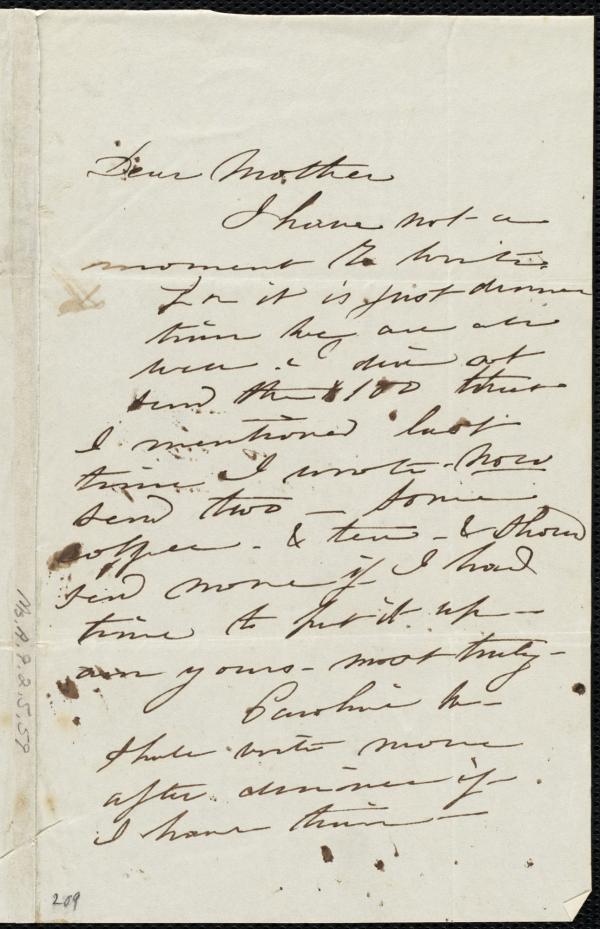 Dear Mother
I have not a
moment to write
for it is just dinner
time we are all
well. I did not
send the $100 that
I mentioned last
time I wrote - now
send two - some
coffee - & tea - & should
send more if I had
time to put it up -
am yours - most truly -
Caroline W -
shall write more
after dinner if
I have time -
Ms.A.9.2.5.59
209